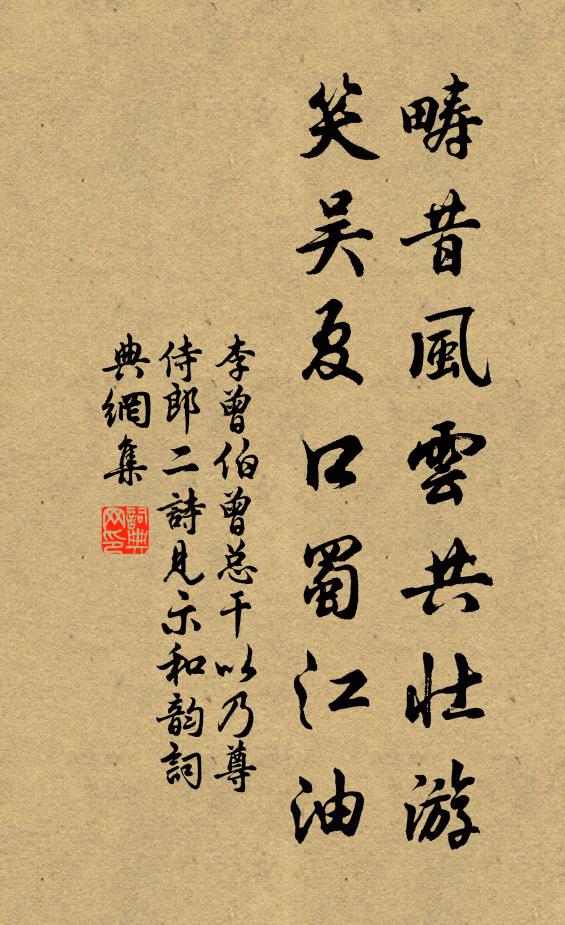 疇昔風雲共壮游
笑吴夏口蜀江油
李曾伯曾总干以乃尊
侍郎二詩見示和韵詞
典網集
詞典网印